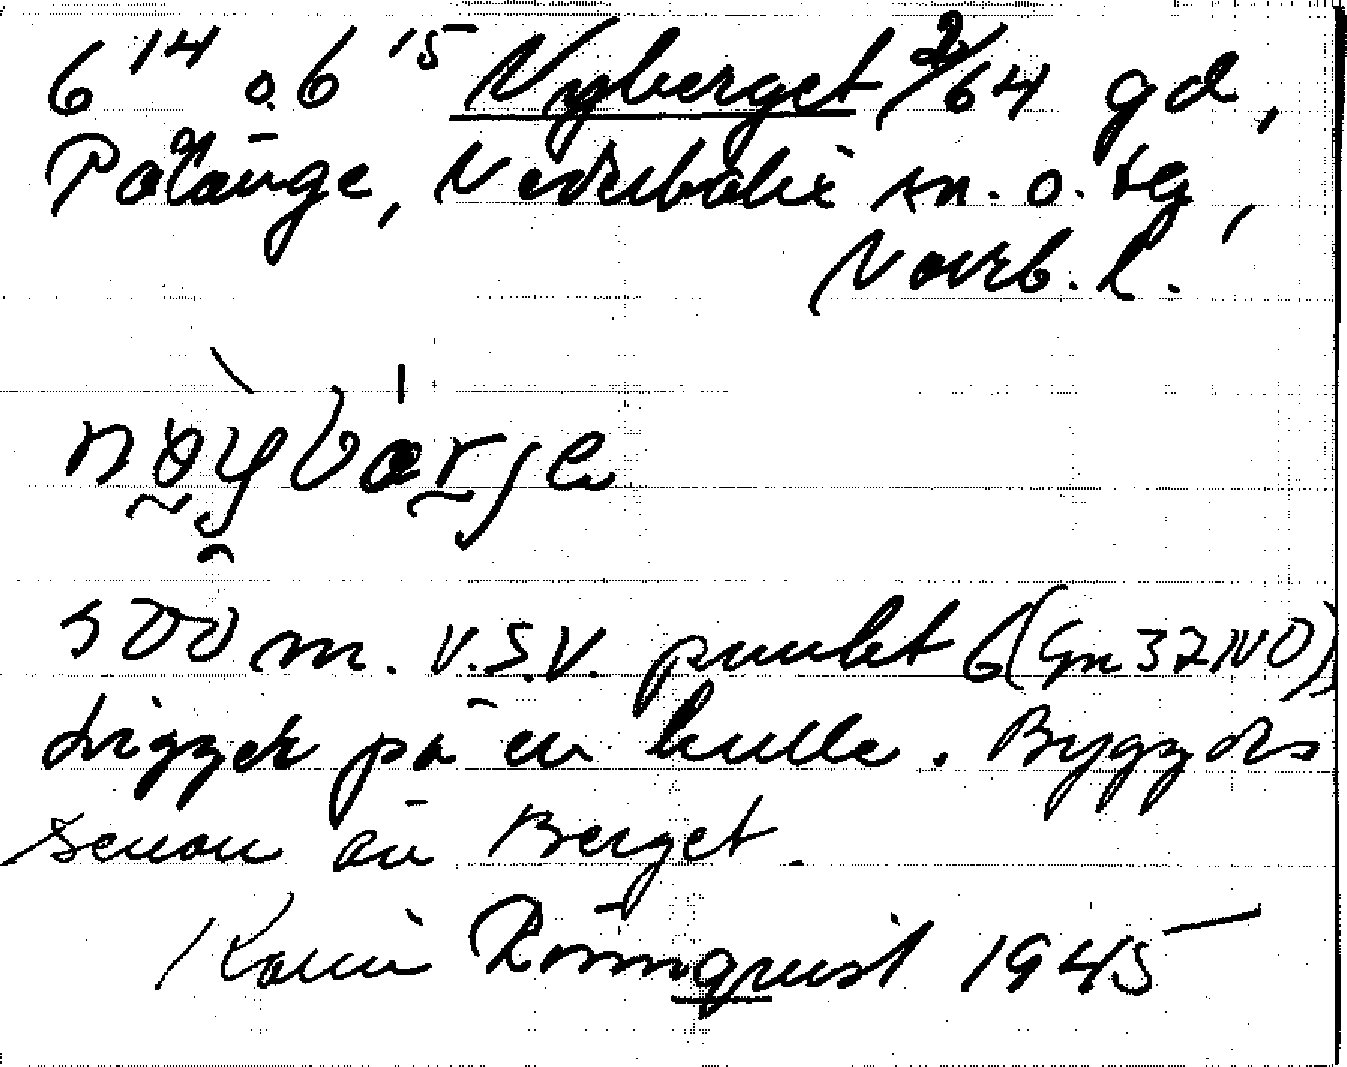 6¹⁴ o. 6¹⁵ Nyberget 2/64 gd,
Pålänge, Nederkalix sn. o. tg,
Norrb. l.
500 m. V.S.V. punkt 6 (Gm 37 IV D),
Ligger på en kulle. Byggdes
senare än Berget.
Karin Rönnqvist 1945